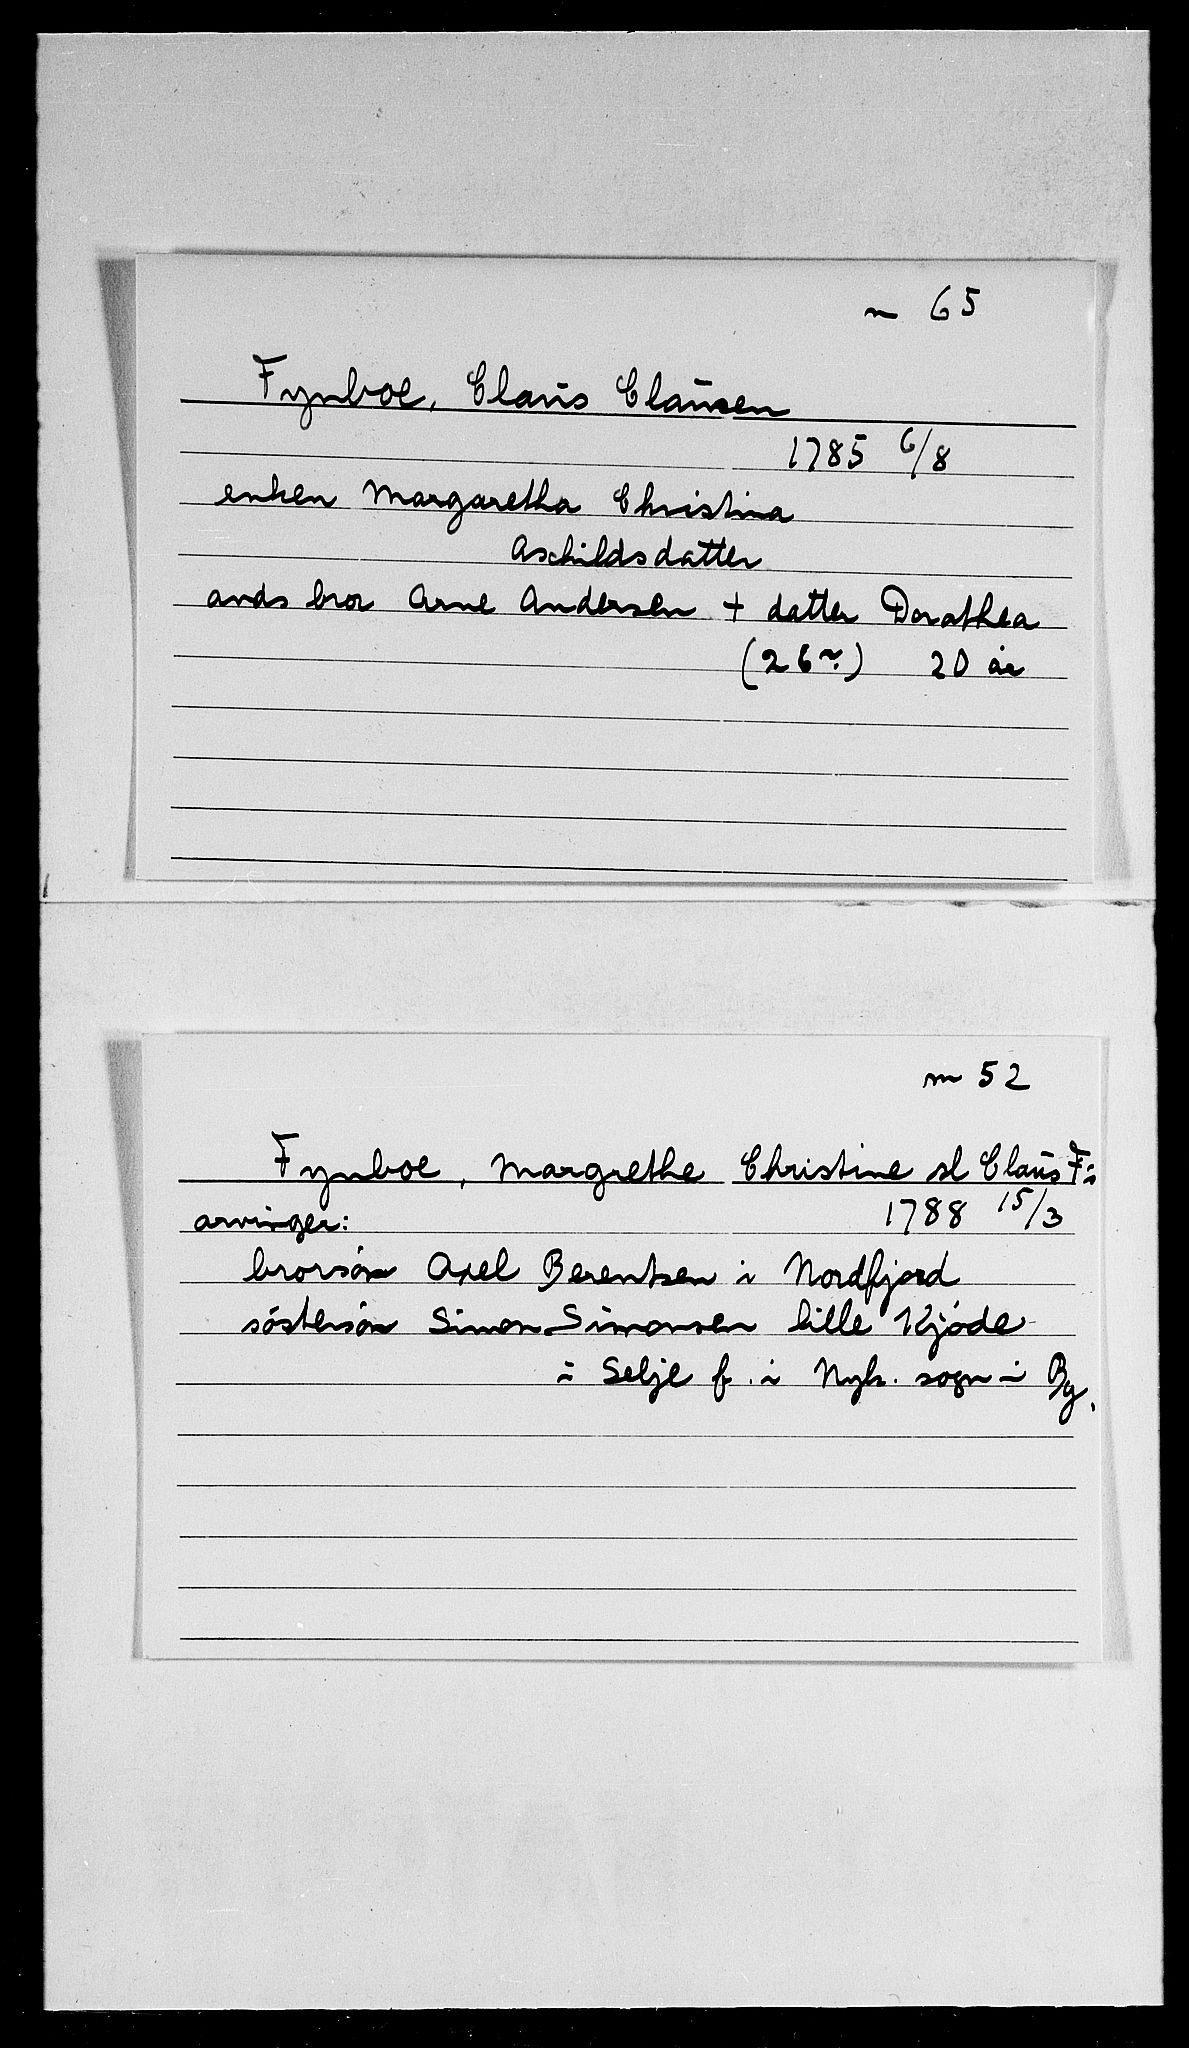 m 65
Fynboe, Claus Clausen
1785 6/8
enken Margaretha Christina
Aschildsdatter
ands bror Arne Andersen + datter Dorothea
20 år
m 52
Fynboe, Margrethe Christine sl Claus F:s
arvinger: 1788 15/3
brorsön Axel Berentsen i Nordfjord
söstersön Simon Simonsen lille Kjöde
i Selje f. i Nyk. sogn i By.